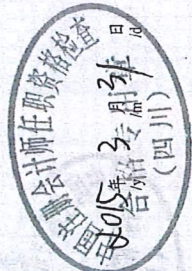 中国注册会计师任职资格检查
2015年3月31日
合格专用章
(四川)